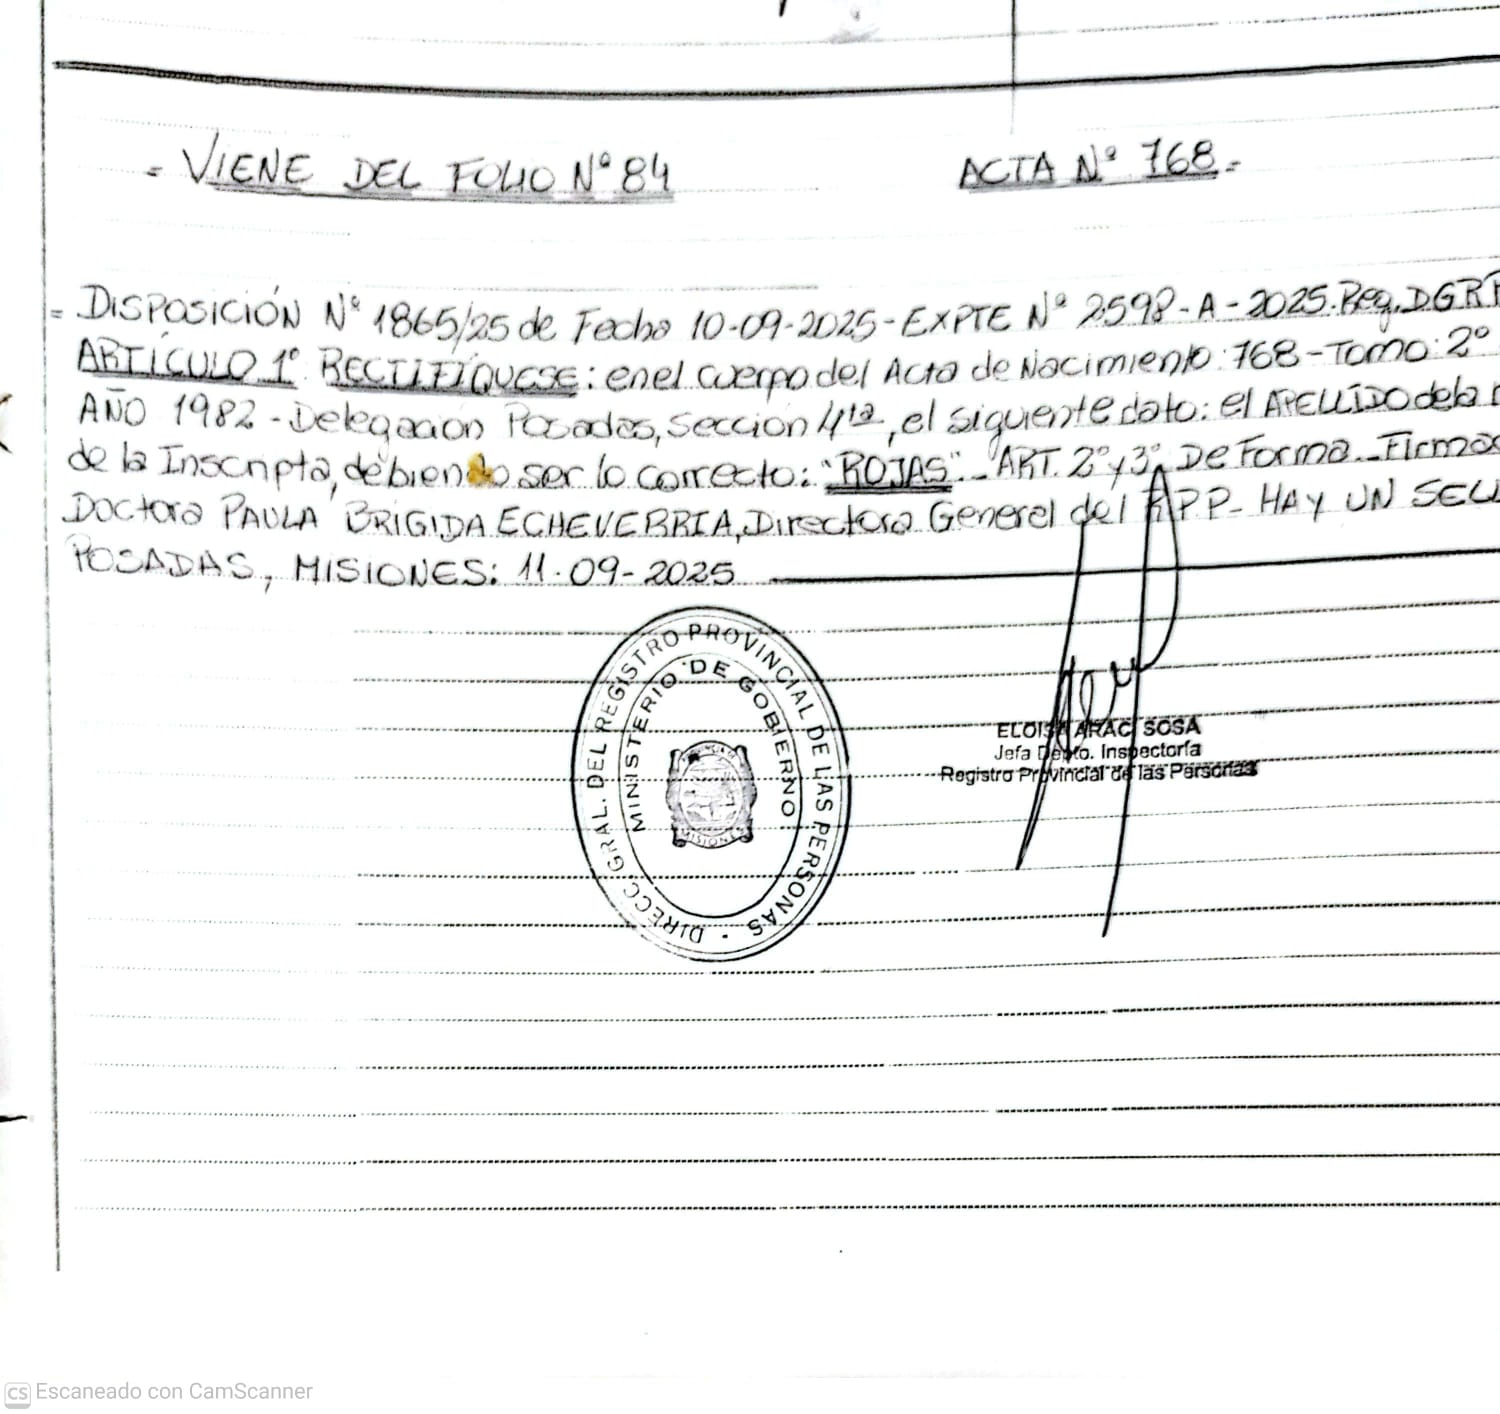 = VIENE DEL FOLIO Nº 84 ACTA Nº 768.=
= DISPOSICIÓN Nº 1865/25 de Fecha 10-09-2025-EXPTE Nº 2598-A-2025.Reg.DGRP
ARTÍCULO 1º RECTIFÍQUESE: en el cuerpo del Acta de Nacimiento: 768-Tomo: 2º
AÑO 1982-Delegación Posadas, Sección 4ta, el siguiente dato: el APELLIDO de la
de la Inscripta, debiendo ser lo correcto: "ROJAS".-ART. 2º y 3º De Forma.-Firmas
Doctora PAULA BRIGIDA ECHEVERRIA, Directora General del RPP- HAY UN SELL
POSADAS, MISIONES: 11-09-2025
DIRECC. GRAL. DEL REGISTRO PROVINCIAL DE LAS PERSONAS
MINISTERIO DE GOBIERNO
MISIONES
ELOISA ARACI SOSA
Jefa Depto. Inspectoría
Registro Provincial de las Personas
CS Escaneado con CamScanner